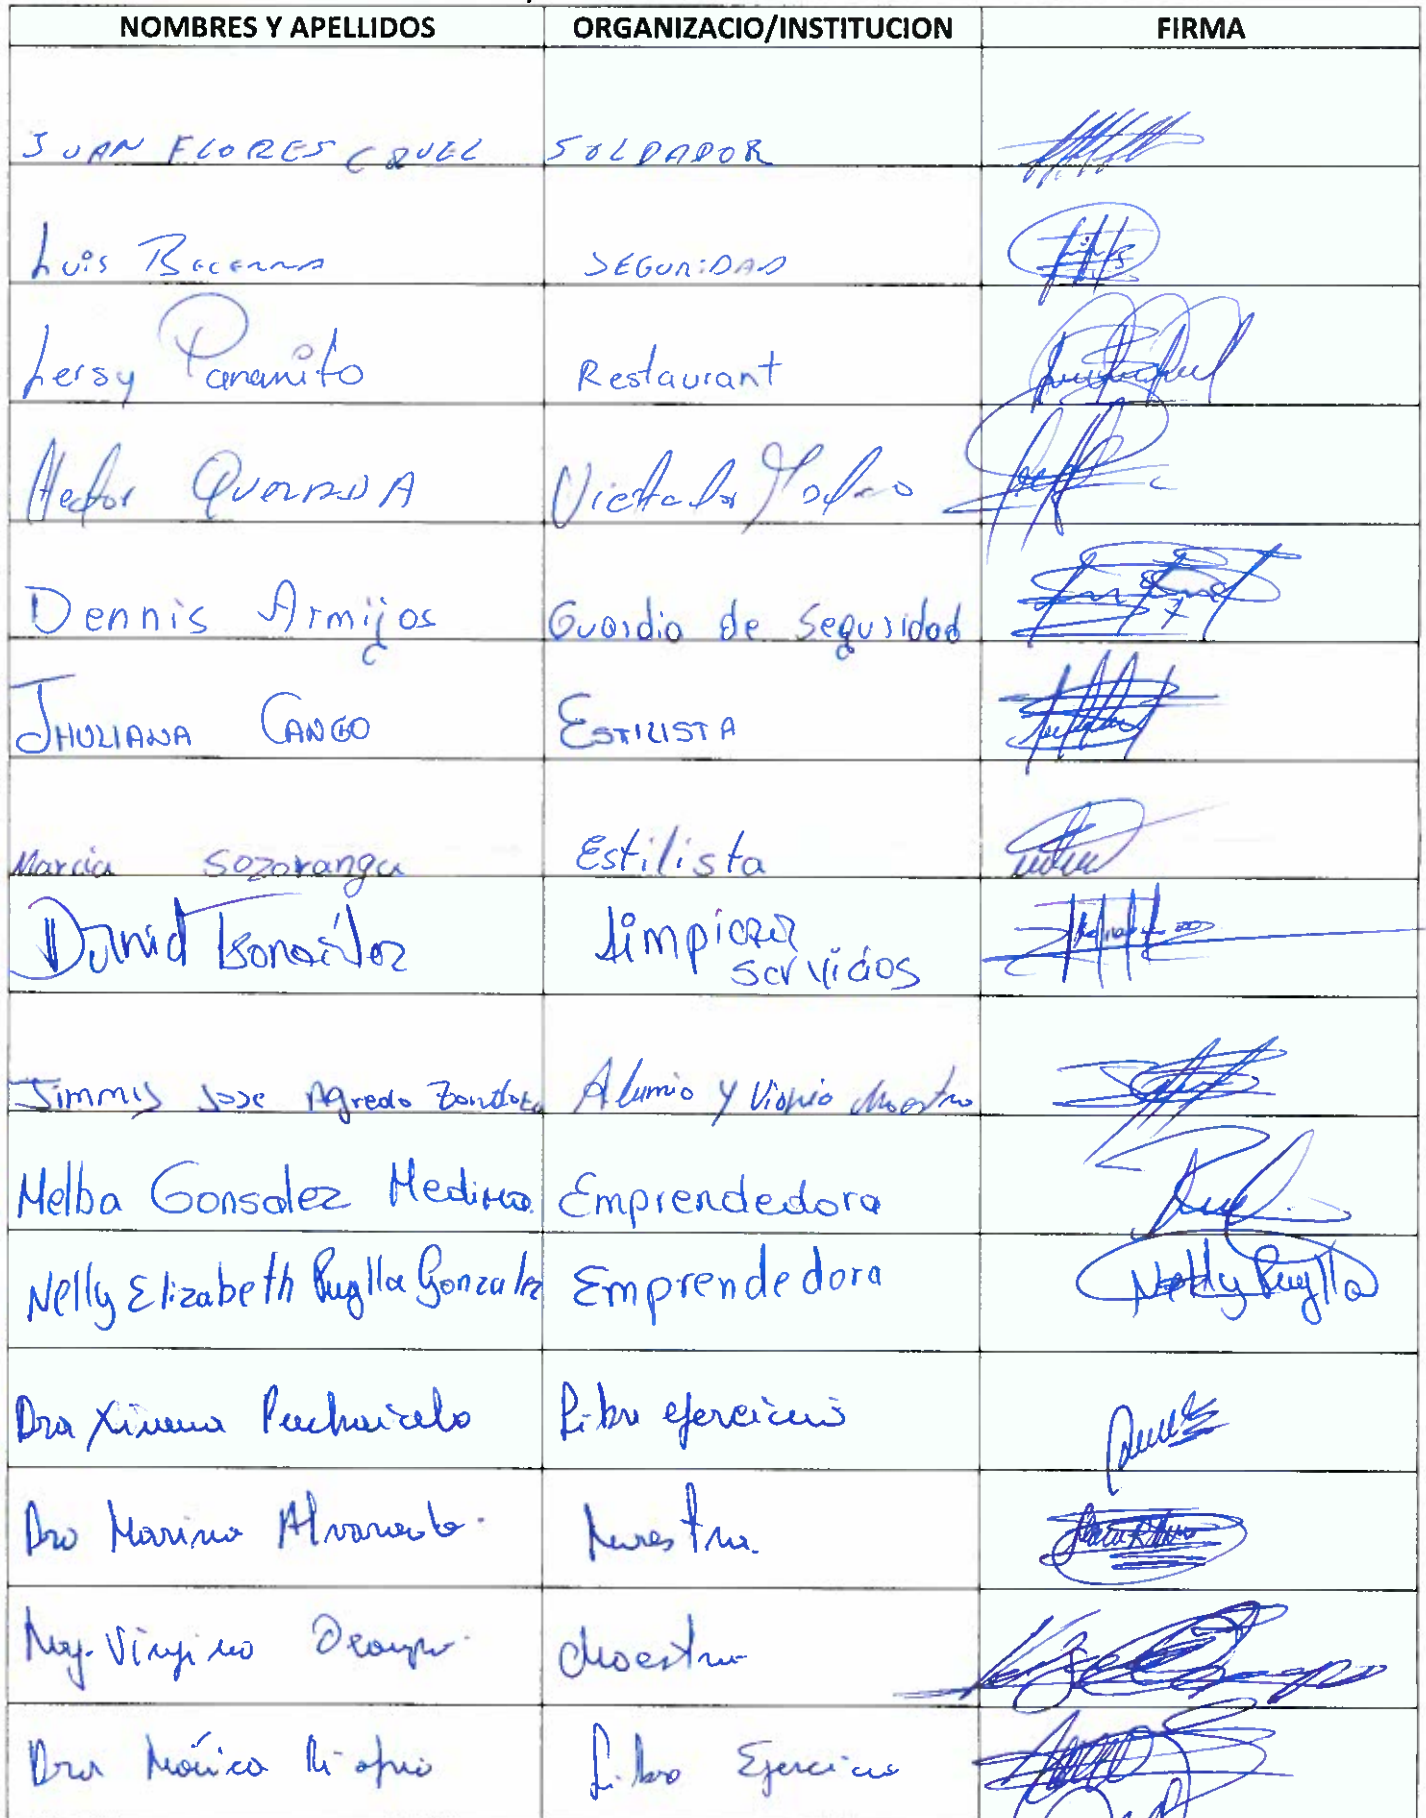 NOMBRES Y APELLIDOS ORGANIZACIO/INSTITUCION FIRMA
JUAN FLORES CRUEL SOLDADOR
Luis Becerra SEGURIDAD
Lersy Panamito Restaurant
Hector QUEZADA
Dennis Armijos Guardia de Seguridad
JHULIANA CANGO ESTILISTA
Marcia Sozoranga Estilista
David González Limpieza
servicios
Jimmy Jose Agredo Alumio y Vidrio Maestro
Melba Gonsalez Medina Emprendedora
Nelly Elizabeth Puglla Gonzalez Emprendedora Nelly Puglla
Dra Ximena Libre ejercicio
Dra Marina Alvarado Maestra.
Mag. Virginia Ocampo Maestra
Dra Mónica Riofrio Libre Ejercicio